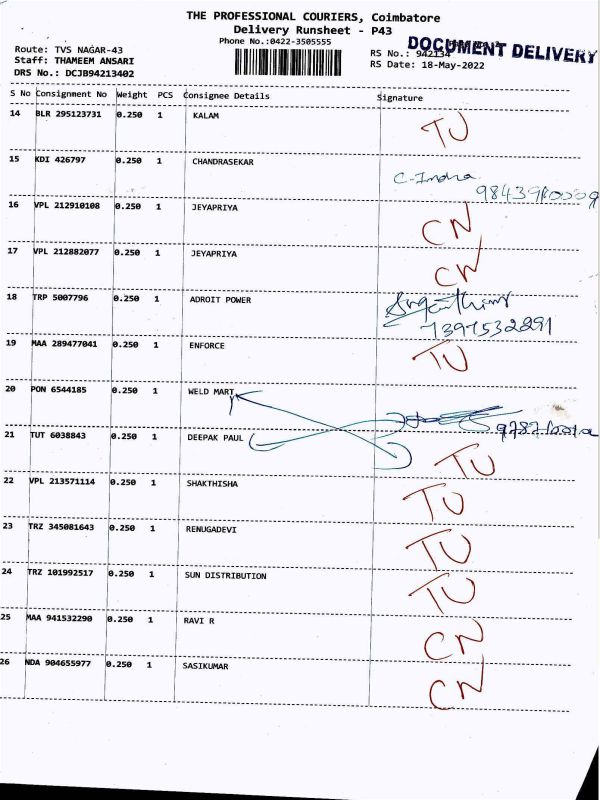 THE PROFESSIONAL COURIERS, Coimbatore
Delivery Runsheet - P43
Phone No.:0422-3505555
DOCUMENT DELIVERY
Route: TVS NAGAR-43
RS No.: 942134
Staff: THAMEEM ANSARI
RS Date: 18-May-2022
DRS No.: DCJB94213402
S No Consignment No Weight PCS Consignee Details Signature
14 BLR 295123731 0.250 1 KALAM TU
15 KDI 426797 0.250 1 CHANDRASEKAR
C-Indra
16 VPL 212910108 0.250 1 JEYAPRIYA CN
17 VPL 212882077 0.250 1 JEYAPRIYA CN
18 TRP 5007796 0.250 1 ADROIT POWER
7397532291
19 MAA 289477041 0.250 1 ENFORCE TU
20 PON 6544185 0.250 1 WELD MART
21 TUT 6038843 0.250 1 DEEPAK PAUL TU
22 VPL 213571114 0.250 1 SHAKTHISHA TU
23 TRZ 345081643 0.250 1 RENUGADEVI TU
24 TRZ 101992517 0.250 1 SUN DISTRIBUTION TU
25 MAA 941532290 0.250 1 RAVI R CN
26 NDA 904655977 0.250 1 SASIKUMAR CN